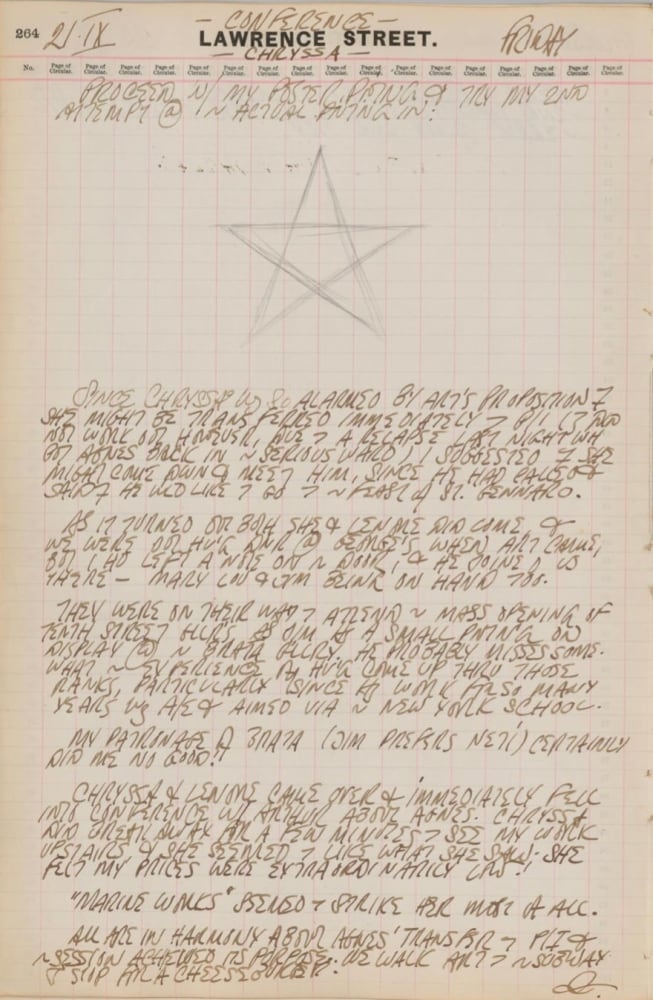 264 21·IX — CONFERENCE — FRIDAY
LAWRENCE STREET.
— CHRYSSA —
No. Page of Circular. Page of Circular. Page of Circular. Page of Circular. Page of Circular. Page of Circular. Page of Circular. Page of Circular. Page of Circular. Page of Circular. Page of Circular. Page of Circular. Page of Circular. Page of Circular. Page of Circular. Page of Circular. Page of Circular.
PROCEED W/ MY POSTER PNTING & TRY MY 2ND
ATTEMPT @ ~ ACTUAL PNTING IN:
SINCE CHRYSSA WS SO ALARMED BY ART'S PROPOSITION
SHE MIGHT BE TRANSFERRED IMMEDIATELY P/I (IT DID
NOT WORK OUT HOWEVER, DUE A RELAPSE LAST NIGHT WH
PUT AGNES BACK IN ~ SERIOUS WARD) I SUGGESTED SHE
MIGHT COME DWN & MEET HIM, SINCE HE HAD CALLED &
SAID HE WLD LIKE GO ~ FEAST OF ST. GENNARO.
AS IT TURNED OUT BOTH SHE & LENORE DID COME, &
WE WERE OUT HV'G DNR @ GEORGE'S WHEN ART CAME,
BUT I HAD LEFT A NOTE ON ~ DOOR, & HE JOINED US
THERE — MARY LOU & JIM BEING ON HAND TOO.
THEY WERE ON THEIR WAY ATTEND ~ MASS OPENING OF
TENTH STREET GLLRS, AS JIM HS A SMALL PNTING ON
DISPLAY @ ~ BRATA GLLRY. HE PROBABLY MISSES SOME-
WHAT ~ EXPERIENCE OF HV'G COME UP THRU THOSE
RANKS, PARTICULARLY SINCE HS WORK FR SO MANY
YEARS WS A/E & AIMED VIA ~ NEW YORK SCHOOL.
MY PATRONAGE OF BRATA (JIM PREFERS NETI) CERTAINLY
DID ME NO GOOD!!
CHRYSSA & LENORE CAME OVER & IMMEDIATELY FELL
INTO CONFERENCE W/ ARTHUR ABOUT AGNES. CHRYSSA
DID BREAK AWAY FR A FEW MINUTES SEE MY WORK
UPSTAIRS & SHE SEEMED LIKE WHAT SHE SAW: SHE
FELT MY PRICES WERE EXTRAORDINARILY LOW!
"MARINE WORKS" SEEMED STRIKE HER MOST OF ALL.
ALL ARE IN HARMONY ABOUT AGNES' TRANSFER P/I &
~ SESSION ACHIEVED ITS PURPOSE. WE WALK ART ~ SUBWAY
& STOP FR A CHEESEBURGER.